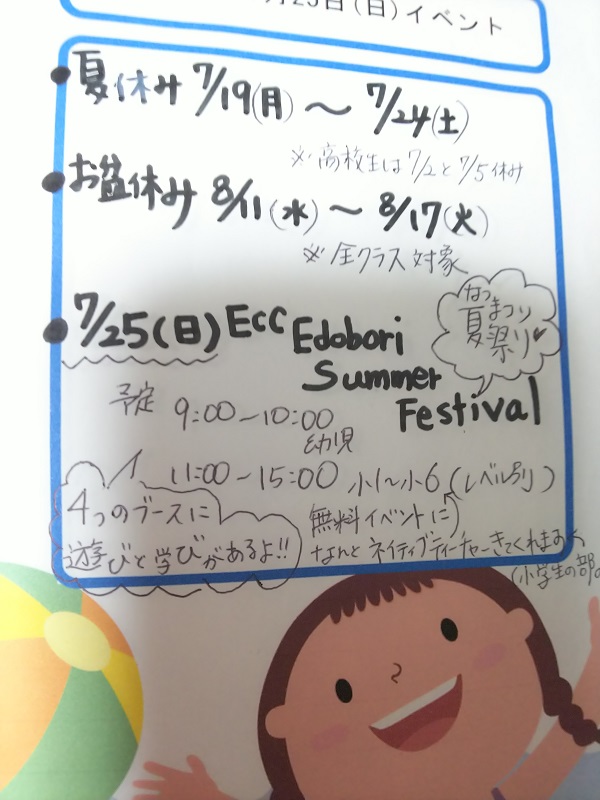 25日(日)イベント
夏休み 7/19(月) 〜 7/24(土)
※高校生は7/2と7/5休み
お盆休み 8/11(水) 〜 8/17(火)
※全クラス対象
7/25(日) ECC Edobori
Summer
Festival
なつまつり
夏祭り
予定 9:00〜10:00
幼児
11:00〜15:00 小1〜小6(レベル別)
4つのブースに
遊びと学びがあるよ!!
無料イベントに
なんとネイティブティーチャーきてくれます
(小学生の部